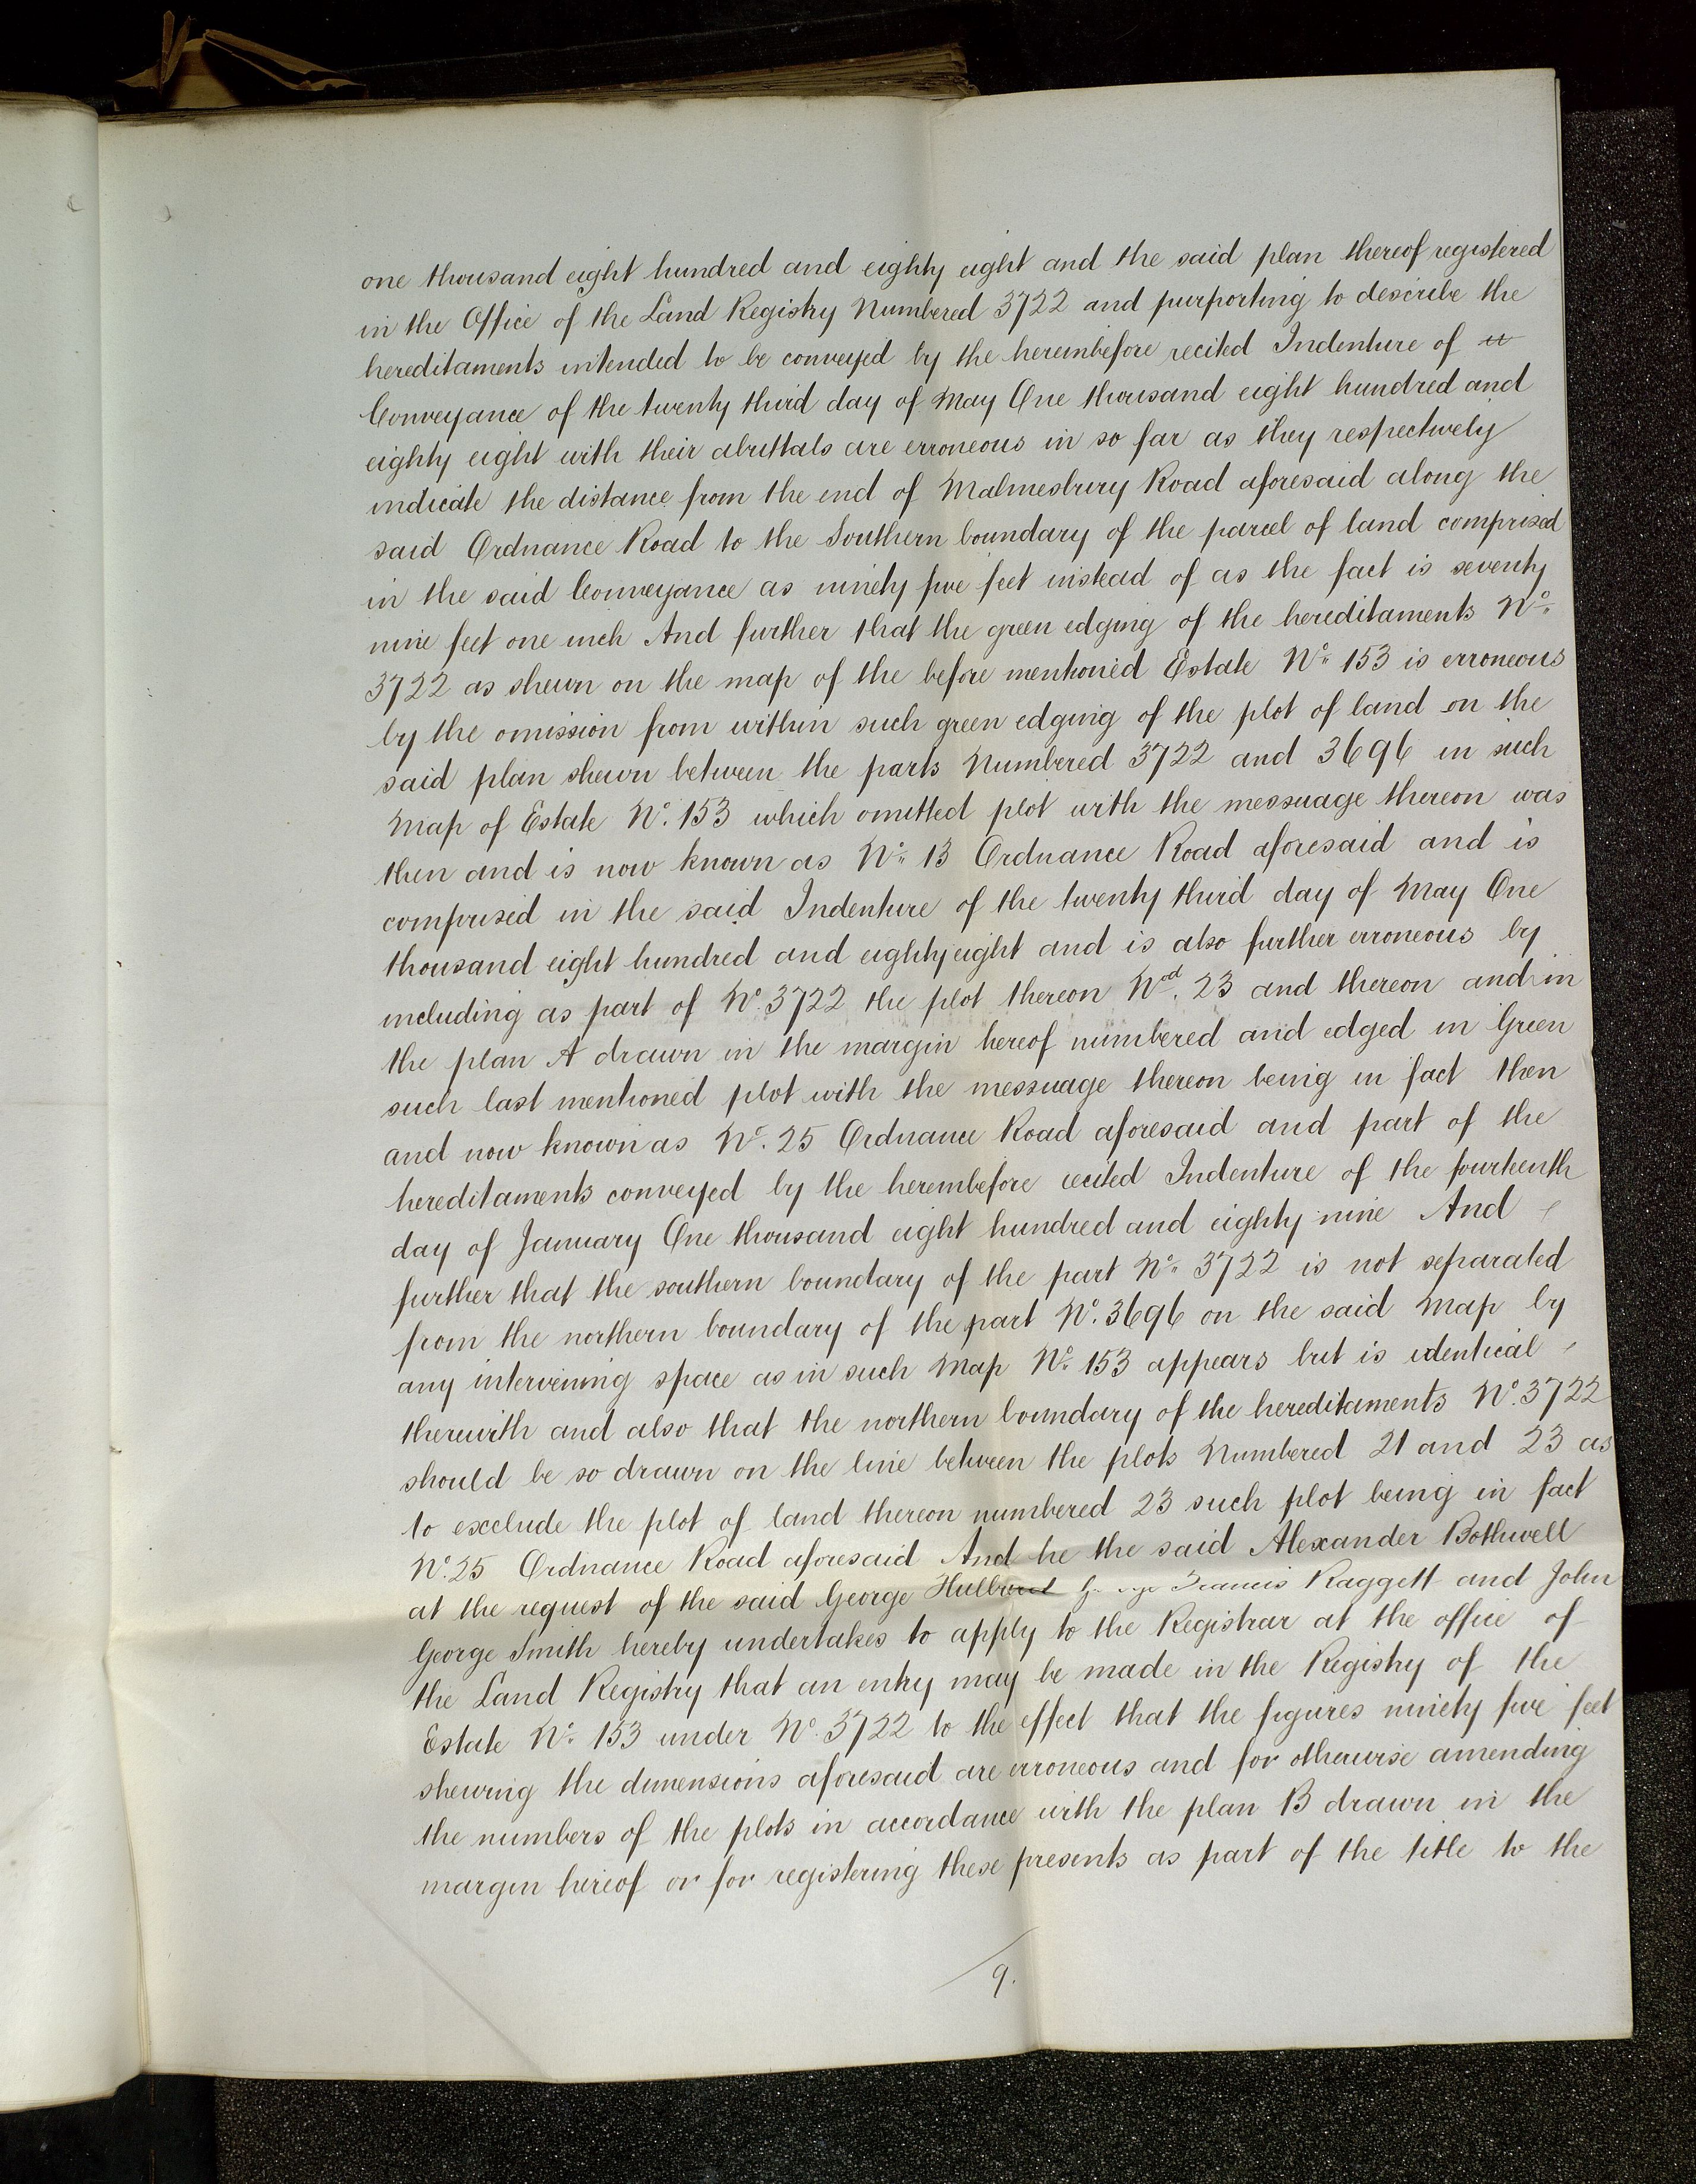 one thousand eight hundred and eighty eight and the said plan thereof registered
in the Office of the Land Registry Numbered 3722 and purporting to describe the
hereditaments intended to be conveyed by the hereinbefore recited Indenture of
Conveyance of the twenty third day of May One thousand eight hundred and
eighty eight with their abuttals are erroneous in so far as they respectively
indicate the distance from the end of Malmesbury Road aforesaid along the
said Ordnance Road to the Southern boundary of the parcel of land comprised
in the said Conveyance as ninety five feet instead of as the fact is seventy
nine feet one inch And further that the green edging of the hereditaments No.
3722 as shewn on the map of the before mentioned Estate No. 153 is erroneous
by the omission from within such green edging of the plot of land on the
said plan shewn between the parts Numbered 3722 and 3696 in such
Map of Estate No. 153 which omitted plot with the messuage thereon was
then and is now known as No. 13 Ordnance Road aforesaid and is
comprised in the said Indenture of the twenty third day of May One
thousand eight hundred and eighty eight and is also further erroneous by
including as part of No. 3722 the plot thereon Nod. 23 and thereon and in
the plan A drawn in the margin hereof numbered and edged in Green
such last mentioned plot with the messuage thereon being in fact then
and now known as No. 25 Ordnance Road aforesaid and part of the
hereditaments conveyed by the hereinbefore recited Indenture of the fourteenth
day of January One thousand eight hundred and eighty nine And
further that the southern boundary of the part No. 3722 is not separated
from the northern boundary of the part No. 3696 on the said Map by
any intervening space as in such Map No. 153 appears but is identical
therewith and also that the northern boundary of the hereditaments No. 3722
should be so drawn on the line between the plots Numbered 21 and 23 as
to exclude the plot of land thereon numbered 23 such plot being in fact
No. 25 Ordnance Road aforesaid And he the said Alexander Bothwell
at the request of the said George Francis Raggett and John
George Smith hereby undertakes to apply to the Registrar at the office of
the Land Registry that an entry may be made in the Registry of the
Estate No. 153 under No. 3722 to the effect that the figures ninety five feet
shewing the dimensions aforesaid are erroneous and for otherwise amending
the numbers of the plots in accordance with the plan B drawn in the
margin hereof or for registering these presents as part of the title to the
9.